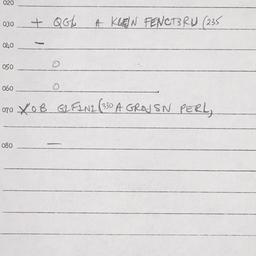 020
030 + QGL A KLEIN FENCT3RU (235
040 –
050 O
060 O
070 XOB G2F1N1 (330 A GRAJSN PERL,
080 —